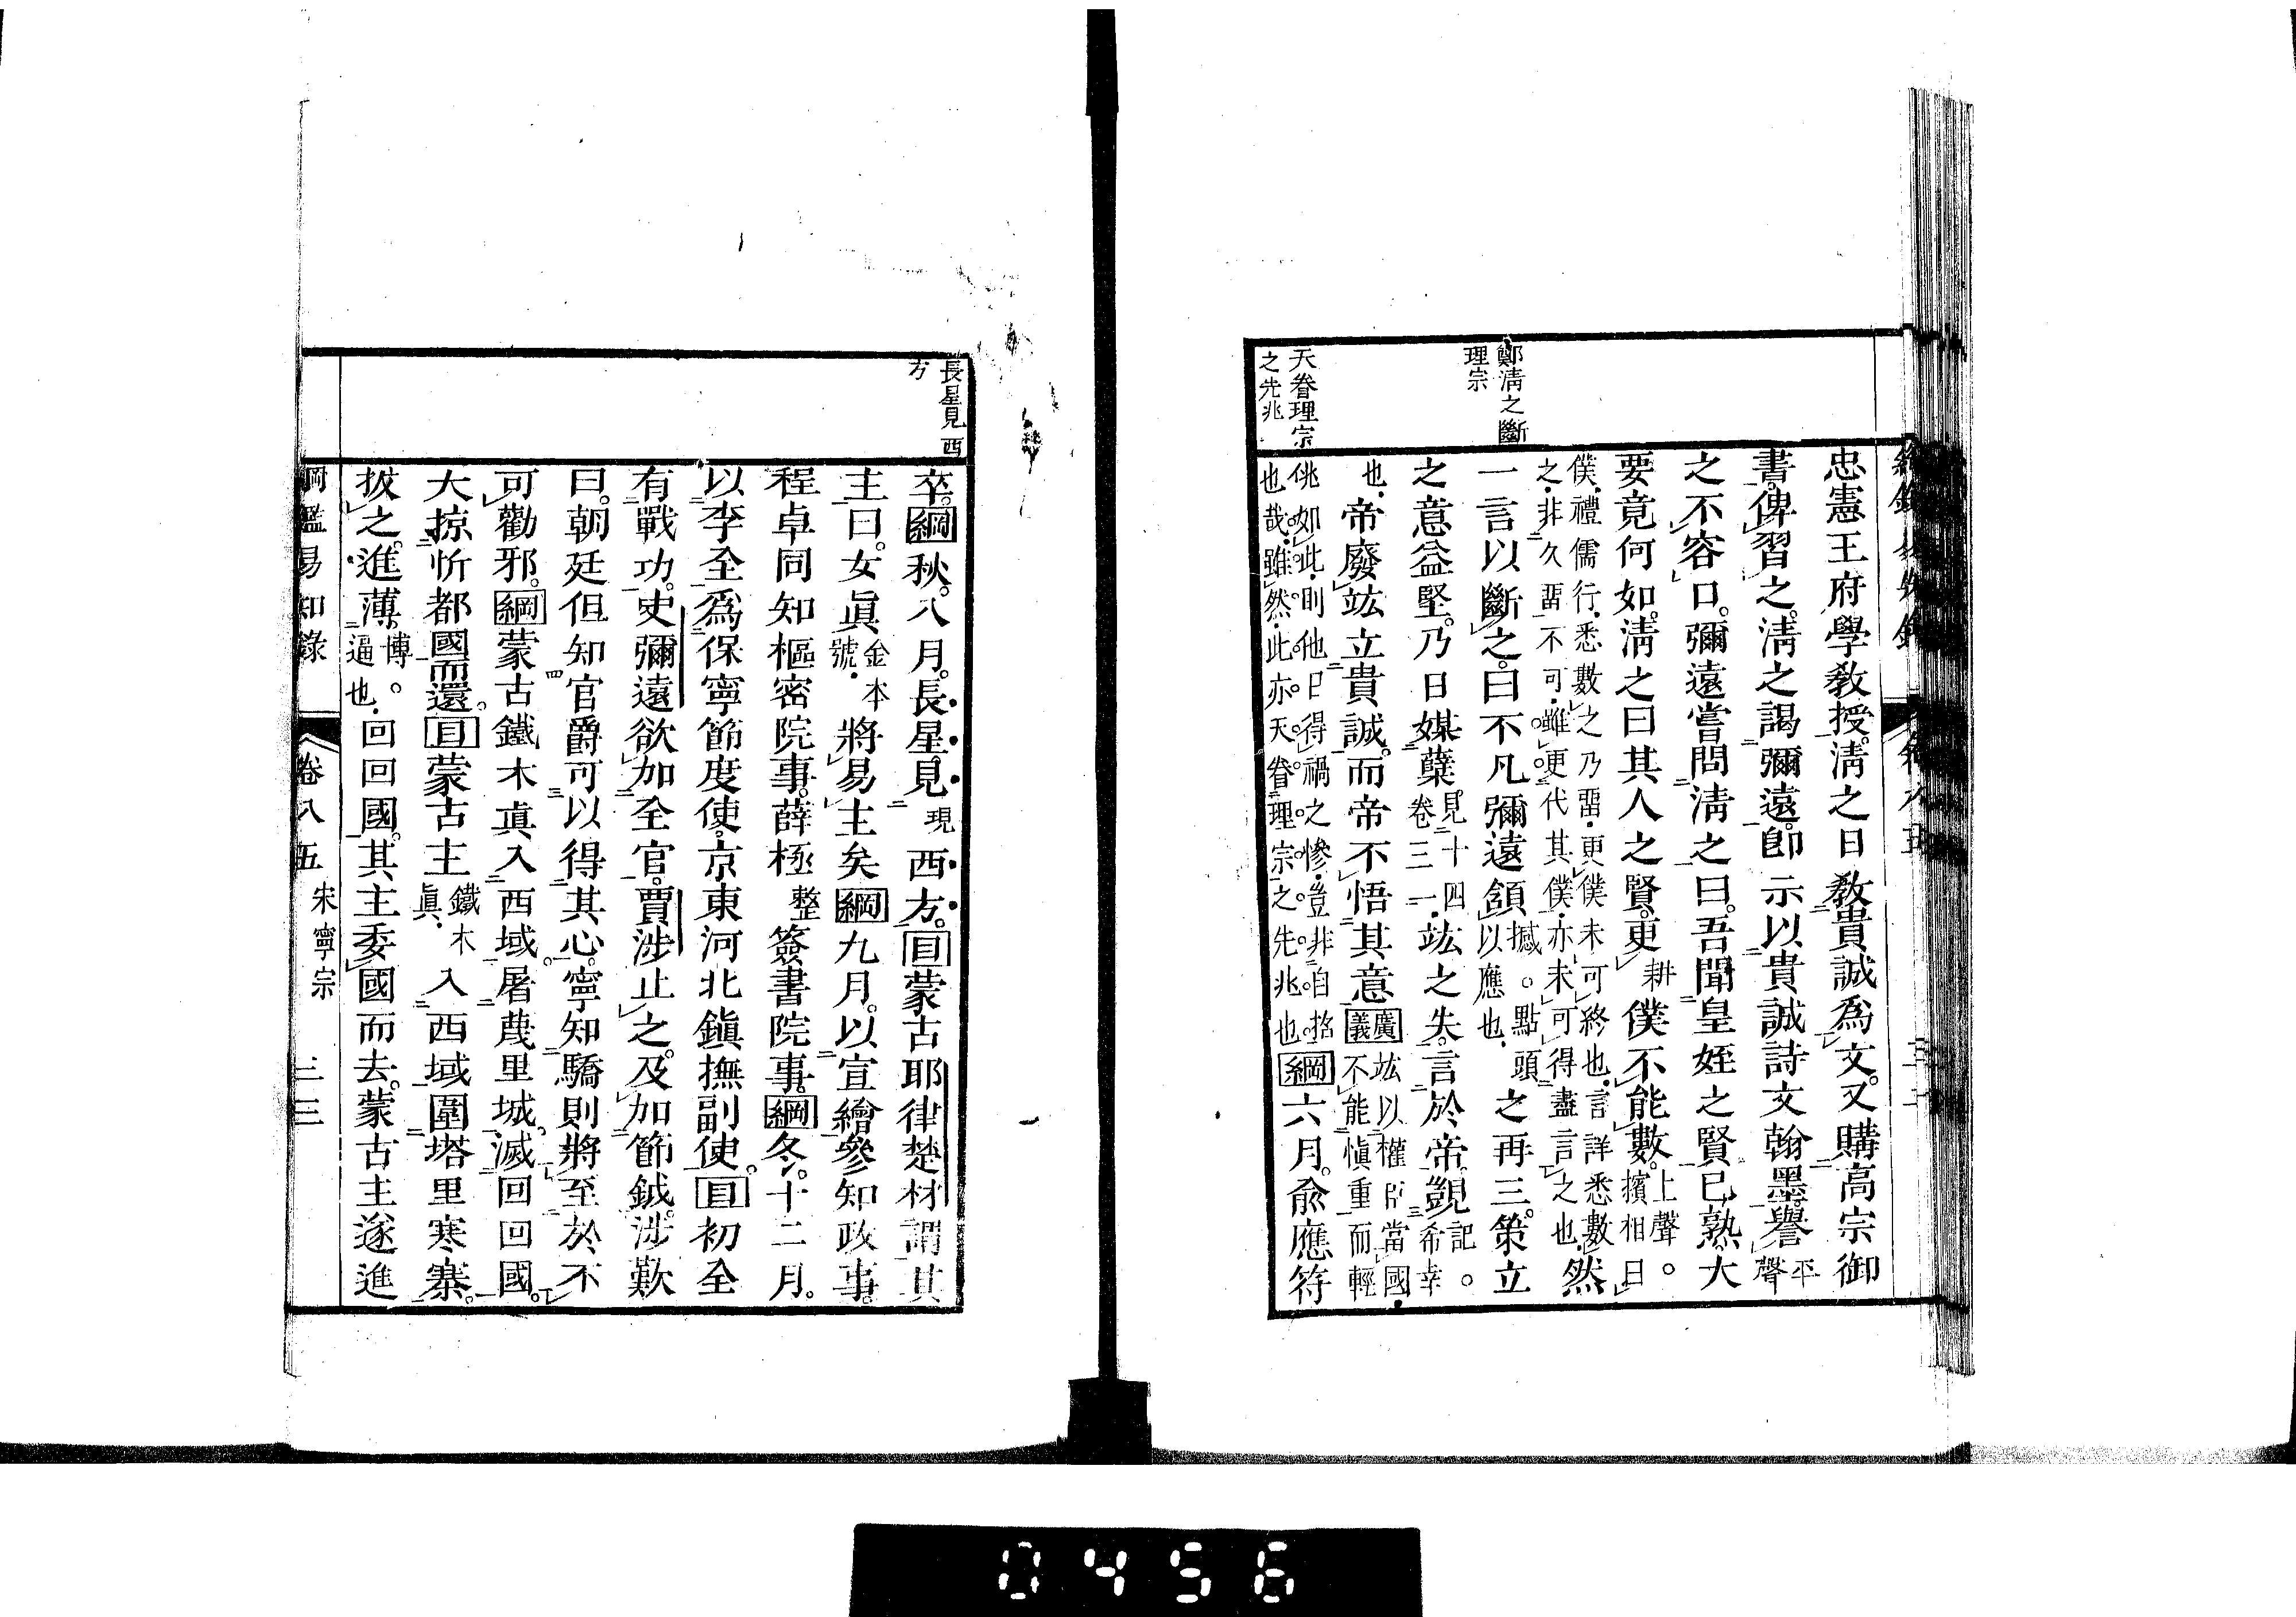 鄭清之斷
理宗
天眷理宗
之先兆
忠憲王府學教授。清之日教貴誠爲文。又購高宗御
書。俾習之。清之謁彌遠。卽示以貴誠詩文翰墨。譽平聲
之不容口。彌遠嘗問清之曰。吾聞皇姪之賢已熟。大
要竟何如。清之曰其人之賢。更耕僕不能數。上聲。擯相曰
僕。禮儒行。悉數之乃畱。更僕未可終也。言詳悉數
之。非久畱不可。雖更代其僕。亦未可得盡言之也。然
一言以斷之。曰不凡彌遠頷撼。點頭以應也。之再三。策立
之意益堅。乃日媒蘖見十四卷三一。竑之失。言於帝。覬記。希幸
也。帝廢竑立貴誠。而帝不悟其意廣義竑以權臣當國。不能愼重而輕
佻如此。則他日得禍之慘。豈非自招
也哉。雖然。此亦天眷理宗之先兆也。綱六月。俞應符
長星見西
方
卒。綱秋。八月。長星見現西方。目蒙古耶律楚材謂其
主曰。女眞金本號。將易主矣綱九月。以宣繒參知政事。
程卓同知樞密院事。薛極整簽書院事。綱冬。十二月。
以李全爲保寧節度使。京東河北鎭撫副使。目初全
有戰功。史彌遠欲加全官。賈涉止之。及加節鉞。涉歎
曰。朝廷但知官爵可以得其心。寧知驕則將至於不
可勸邪。綱蒙古鐵木眞入西域。屠蔑里城。滅回回國。
大掠忻都國而還。目蒙古主鐵木眞。入西域圍塔里寒寨。
拔之。進薄。博。逼也。回回國。其主委國而去。蒙古主遂進
綱鑑易知錄 卷八五 宋寧宗 三三
0456